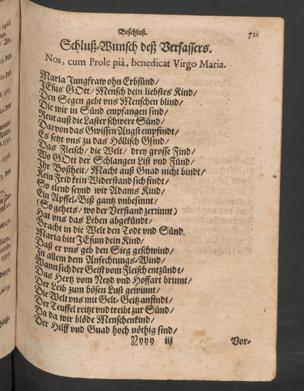 Beschluß. 721
Schluß-Wunsch deß Verfassers.
Nos, cum Prole piâ, benedicat Virgo Maria.
Maria Jungfraw ohn Erbsünd/
JEsus GOtt/ Mensch dein liebstes Kind/
Den Segen gebt vns Menschen blind/
Die wir in Sünd empfangen sind/
Rewt auß die Laster schwere Sünd/
Darvon das Gwissen Angst empfindt/
Es setzt vns zu das Höllisch Gsind/
Das Fleisch/ die Welt/ drey grosse Find/
Wo GOtt der Schlangen List vnd Fünd/
Ihr Boßheit/ Macht auß Gnad nicht bindt/
Kein Frid kein Widerstand sich findt/
So elend seynd wir Adams Kind/
Ein Apffel-Biß gantz vnbesinnt/
(So gehets/ wo der Verstand zerinnt)
Hat vns das Leben abgekündt/
Bracht in die Welt den Todt vnd Sünd.
Maria bitt JEsum dein Kind/
Daß er vns geb den Sieg geschwind/
In allem dem Anfechtungs-Wind/
Wann sich der Geist vom Fleisch entzündt/
Das Hertz vom Neyd vnd Hoffart brinnt/
Der Leib zum bösen Lust gewinnt/
Die Welt vns mit Gelt-Geitz anfindt/
Der Teuffel reitzt vnd treibt zur Sünd/
Da da wir blöde Menschenkind/
Der Hilff vnd Gnad hoch nöthig sind/
Yyyy iij Vor-